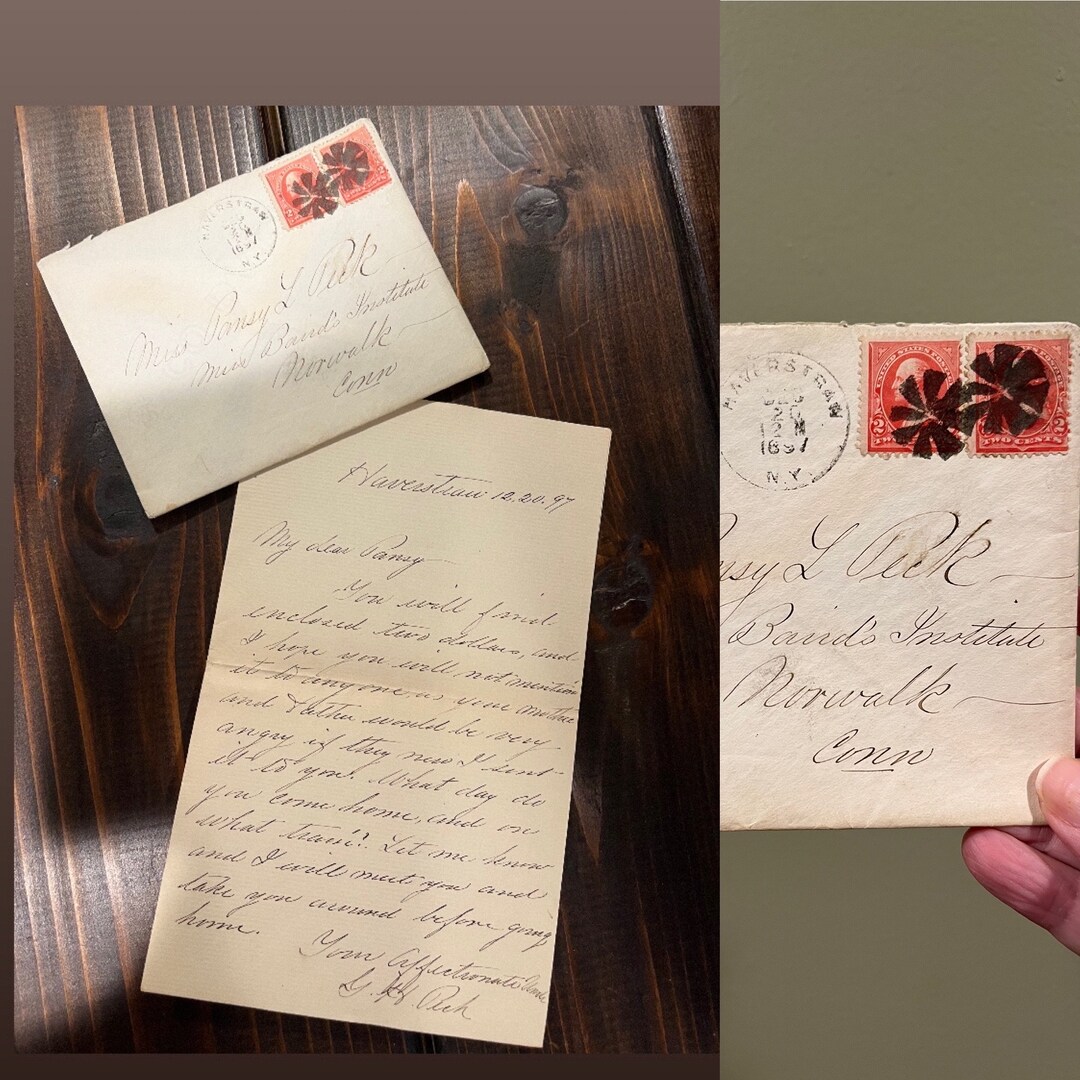 HAVERSTRAW
DEC
20
12 M
1897
N.Y.
Miss Pansy L Peck
Miss Baird's Institute
Norwalk
Conn
Haverstraw 12.20.97
My dear Pansy
You will find
enclosed two dollars, and
I hope you will not mention
it to anyone as your mother
and Father would be very
angry if they new I sent
it to you. What day do
you come home, and on
what train? Let me know
and I will meet you and
take you around before going
home.
Your Affectionate Uncle
G. H. Peck
HAVERSTRAW
DEC
20
12 M
1897
N.Y.
UNITED STATES POSTAGE
2 2
TWO CENTS
nsy L Peck
Baird's Institute
Norwalk
Conn